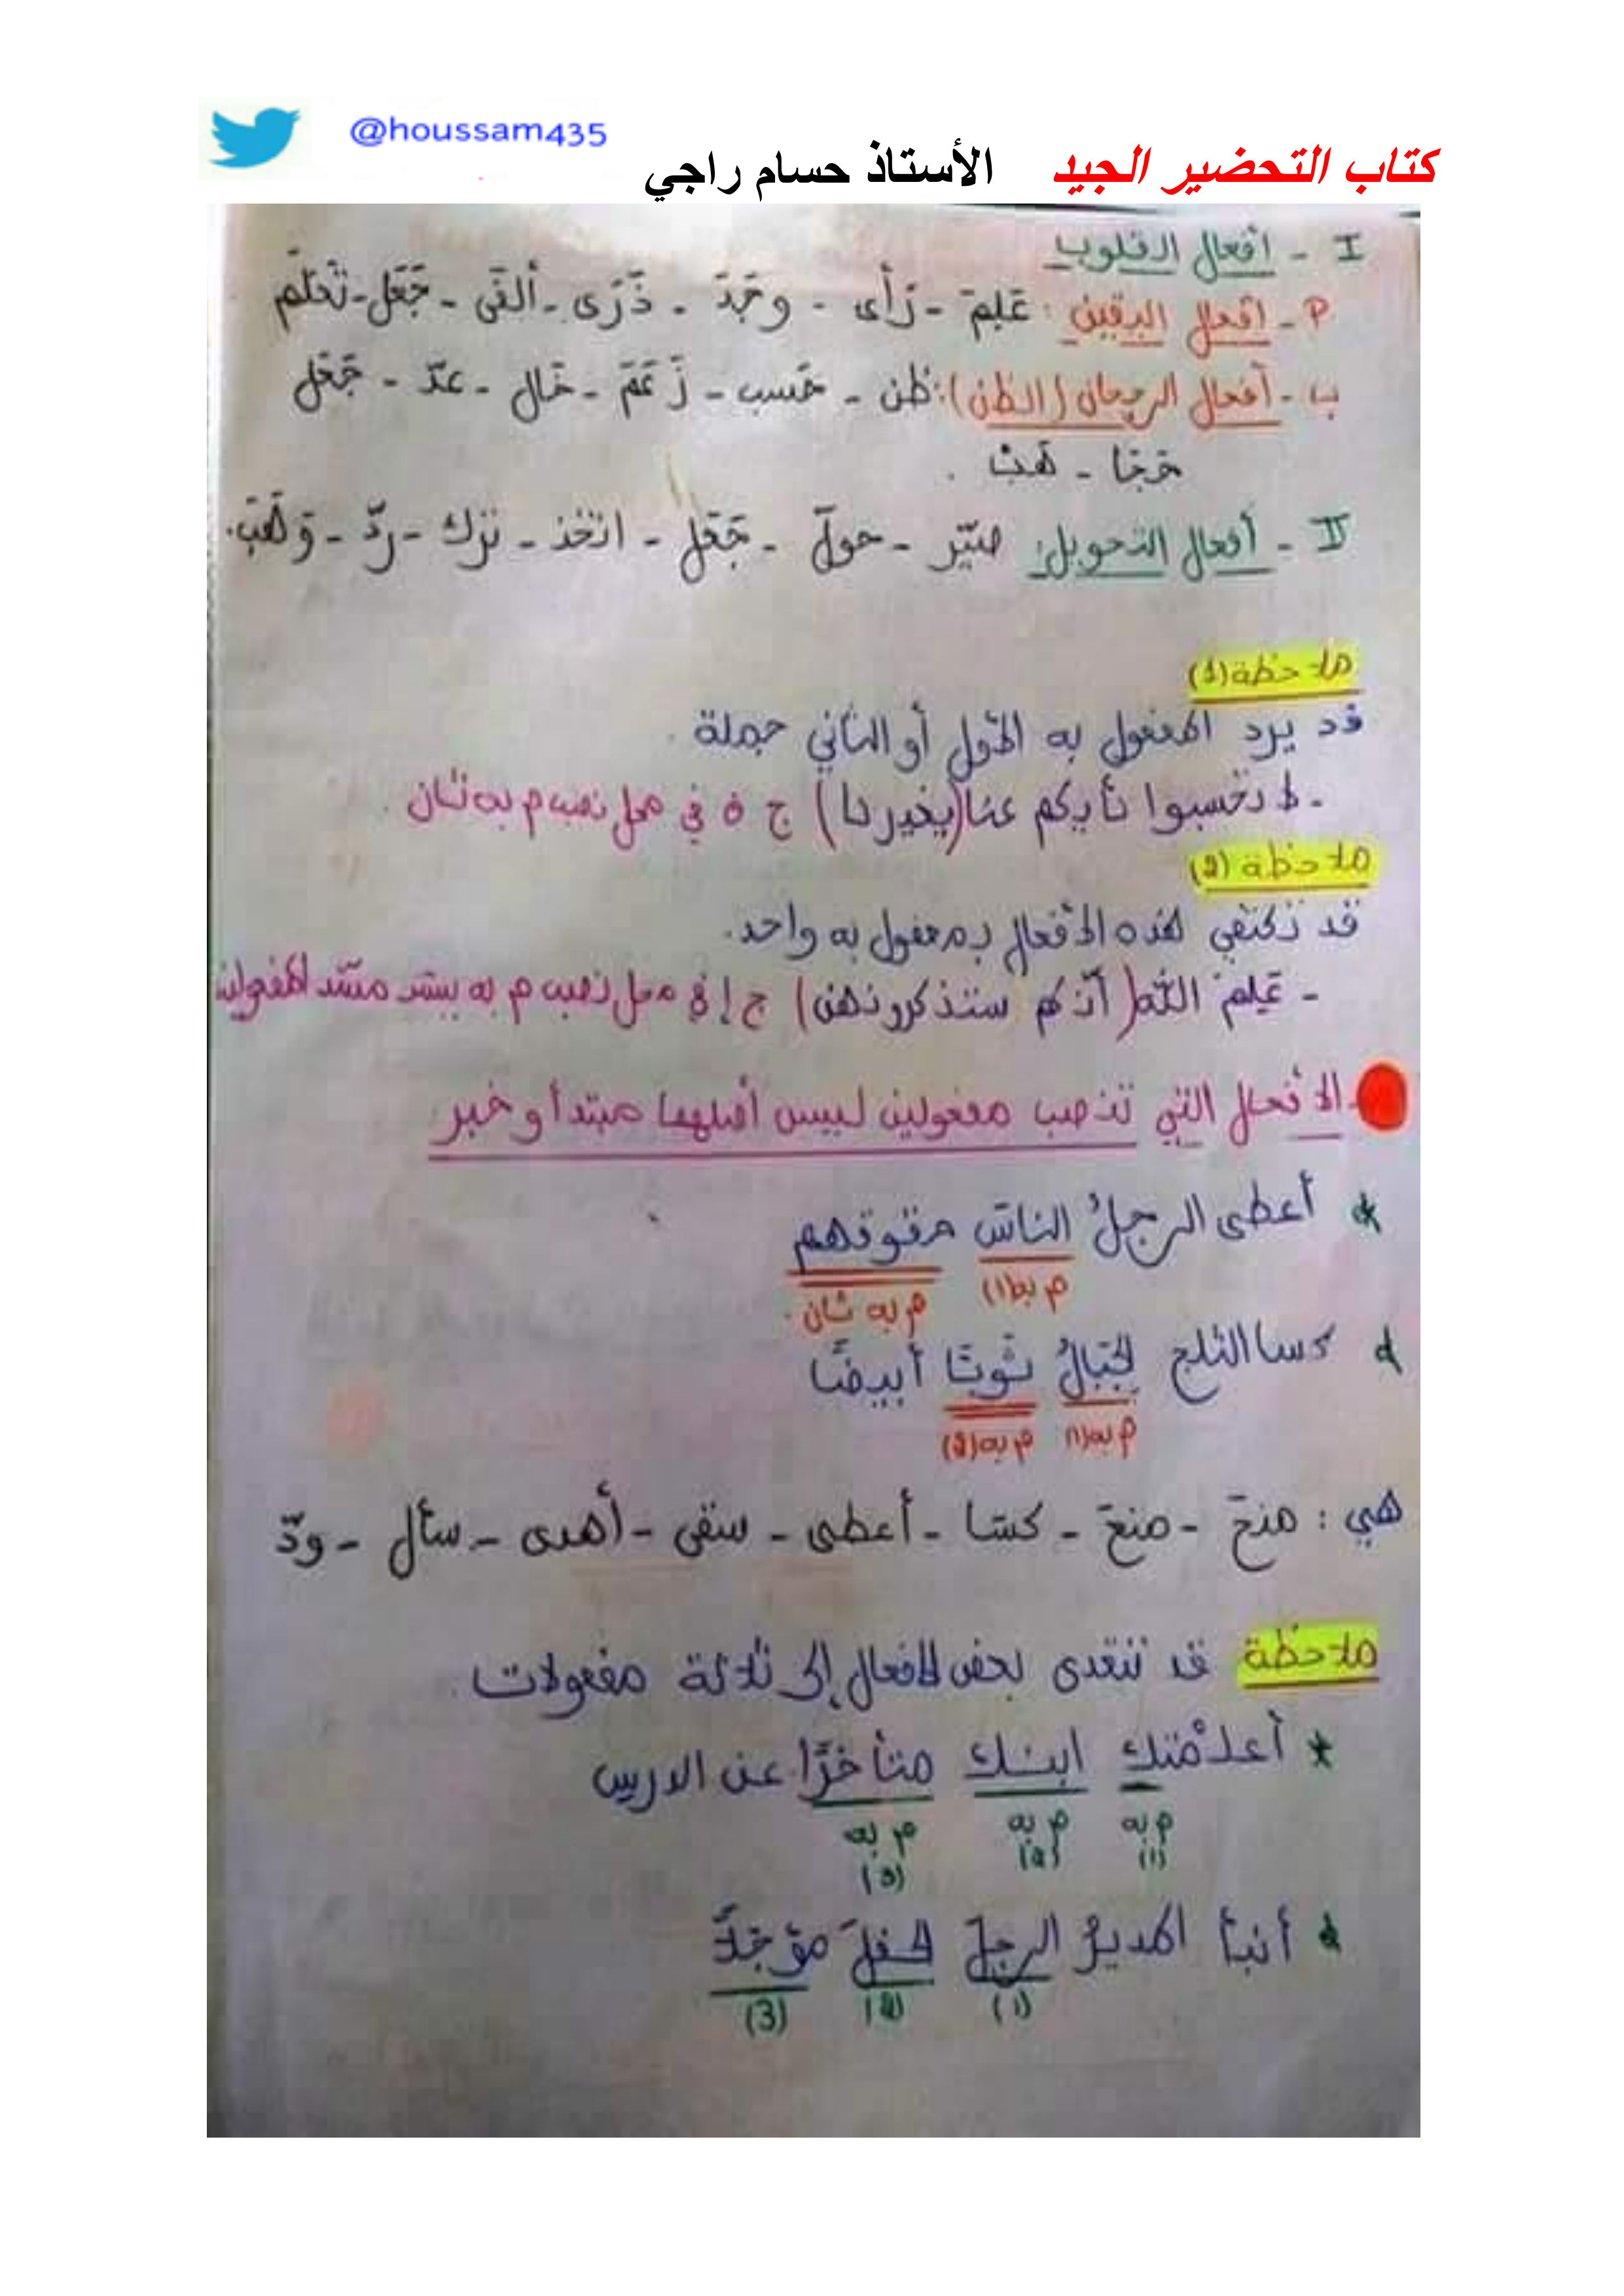 @houssam435
كتاب التحضير الجيد الأستاذ حسام راجي
I - أفعال القلوب
P - أفعال اليقين : عَلِمَ - رَأى - وجَدَ - دَرَى - ألفَى - جَعَل - تَعَلَّم
ب - أفعال الرجحان (الظن): ظن - حَسب - زَعَمَ - خَال - عدّ - جَعَل
حَجَا - هَبْ .
II - أفعال التحويل: صيّر - حولّ - جَعَل - اتخذ - ترك - ردّ - وَهَبَ.
ملاحظة (1)
قد يرد المفعول به الأول أو الثاني جملة .
- لا تحسبوا نأيكم عنا (يغيرنا) ج ف في محل نصب م به ثان .
ملاحظة (2)
قد تكتفي هذه الأفعال بمفعول به واحد.
- عَلِمَ اللّه (أنّكم ستذكرونهن) ج إ في محل نصب م به يسد مسّد المفعولين
- الأفعال التي تنصب مفعولين ليس أصلهما مبتدأ و خبر
* أعطى الرجلُ الناسَ حقوقهم
م به(1) م به ثان .
* كسا الثلج الجبالَ ثوبًا أبيضًا
م به(1) م به(2)
هي : منحَ - منعَ - كسَا - أعطى - سقى - أهدى - سأل - ودّ
ملاحظة قد تتعدى بعض الأفعال إلى ثلاثة مفعولات .
* أعلمْتك ابنك متأخرًا عن الدرس
م به م به م به
(1) (2) (3)
* أنبأ المديرُ الرجلَ الحفلَ مؤجَلًا
(1) (2) (3)